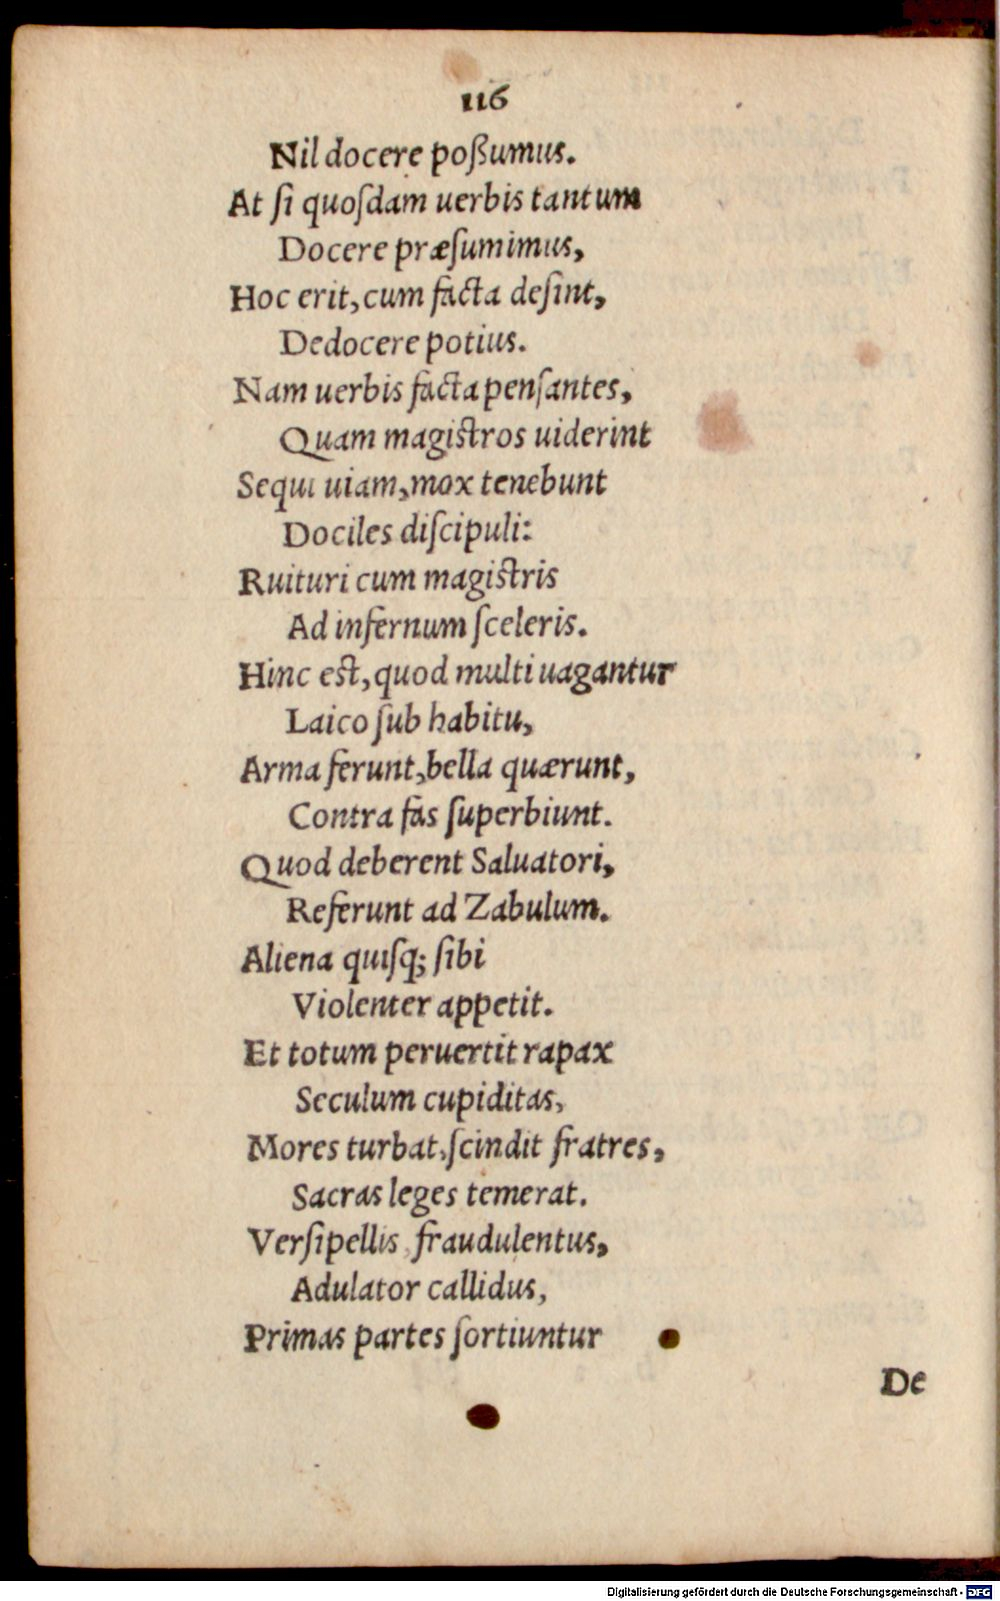 116
Nil docere poßumus.
At ſi quoſdam uerbis tantum
Docere præſumimus,
Hoc erit, cum facta deſint,
Dedocere potius.
Nam uerbis facta penſantes,
Quam magiſtros uiderint
Sequi uiam, mox tenebunt
Dociles diſcipuli:
Ruituri cum magiſtris
Ad infernum ſceleris.
Hinc eſt, quod multi uagantur
Laico ſub habitu,
Arma ferunt, bella quærunt,
Contra fas ſuperbiunt.
Quod deberent Saluatori,
Referunt ad Zabulum.
Aliena quiſq; ſibi
Violenter appetit.
Et totum peruertit rapax
Seculum cupiditas,
Mores turbat, ſcindit fratres,
Sacras leges temerat.
Verſipellis, fraudulentus,
Adulator callidus,
Primas partes ſortiuntur
De
Digitalisierung gefördert durch die Deutsche Forschungsgemeinschaft - DFG